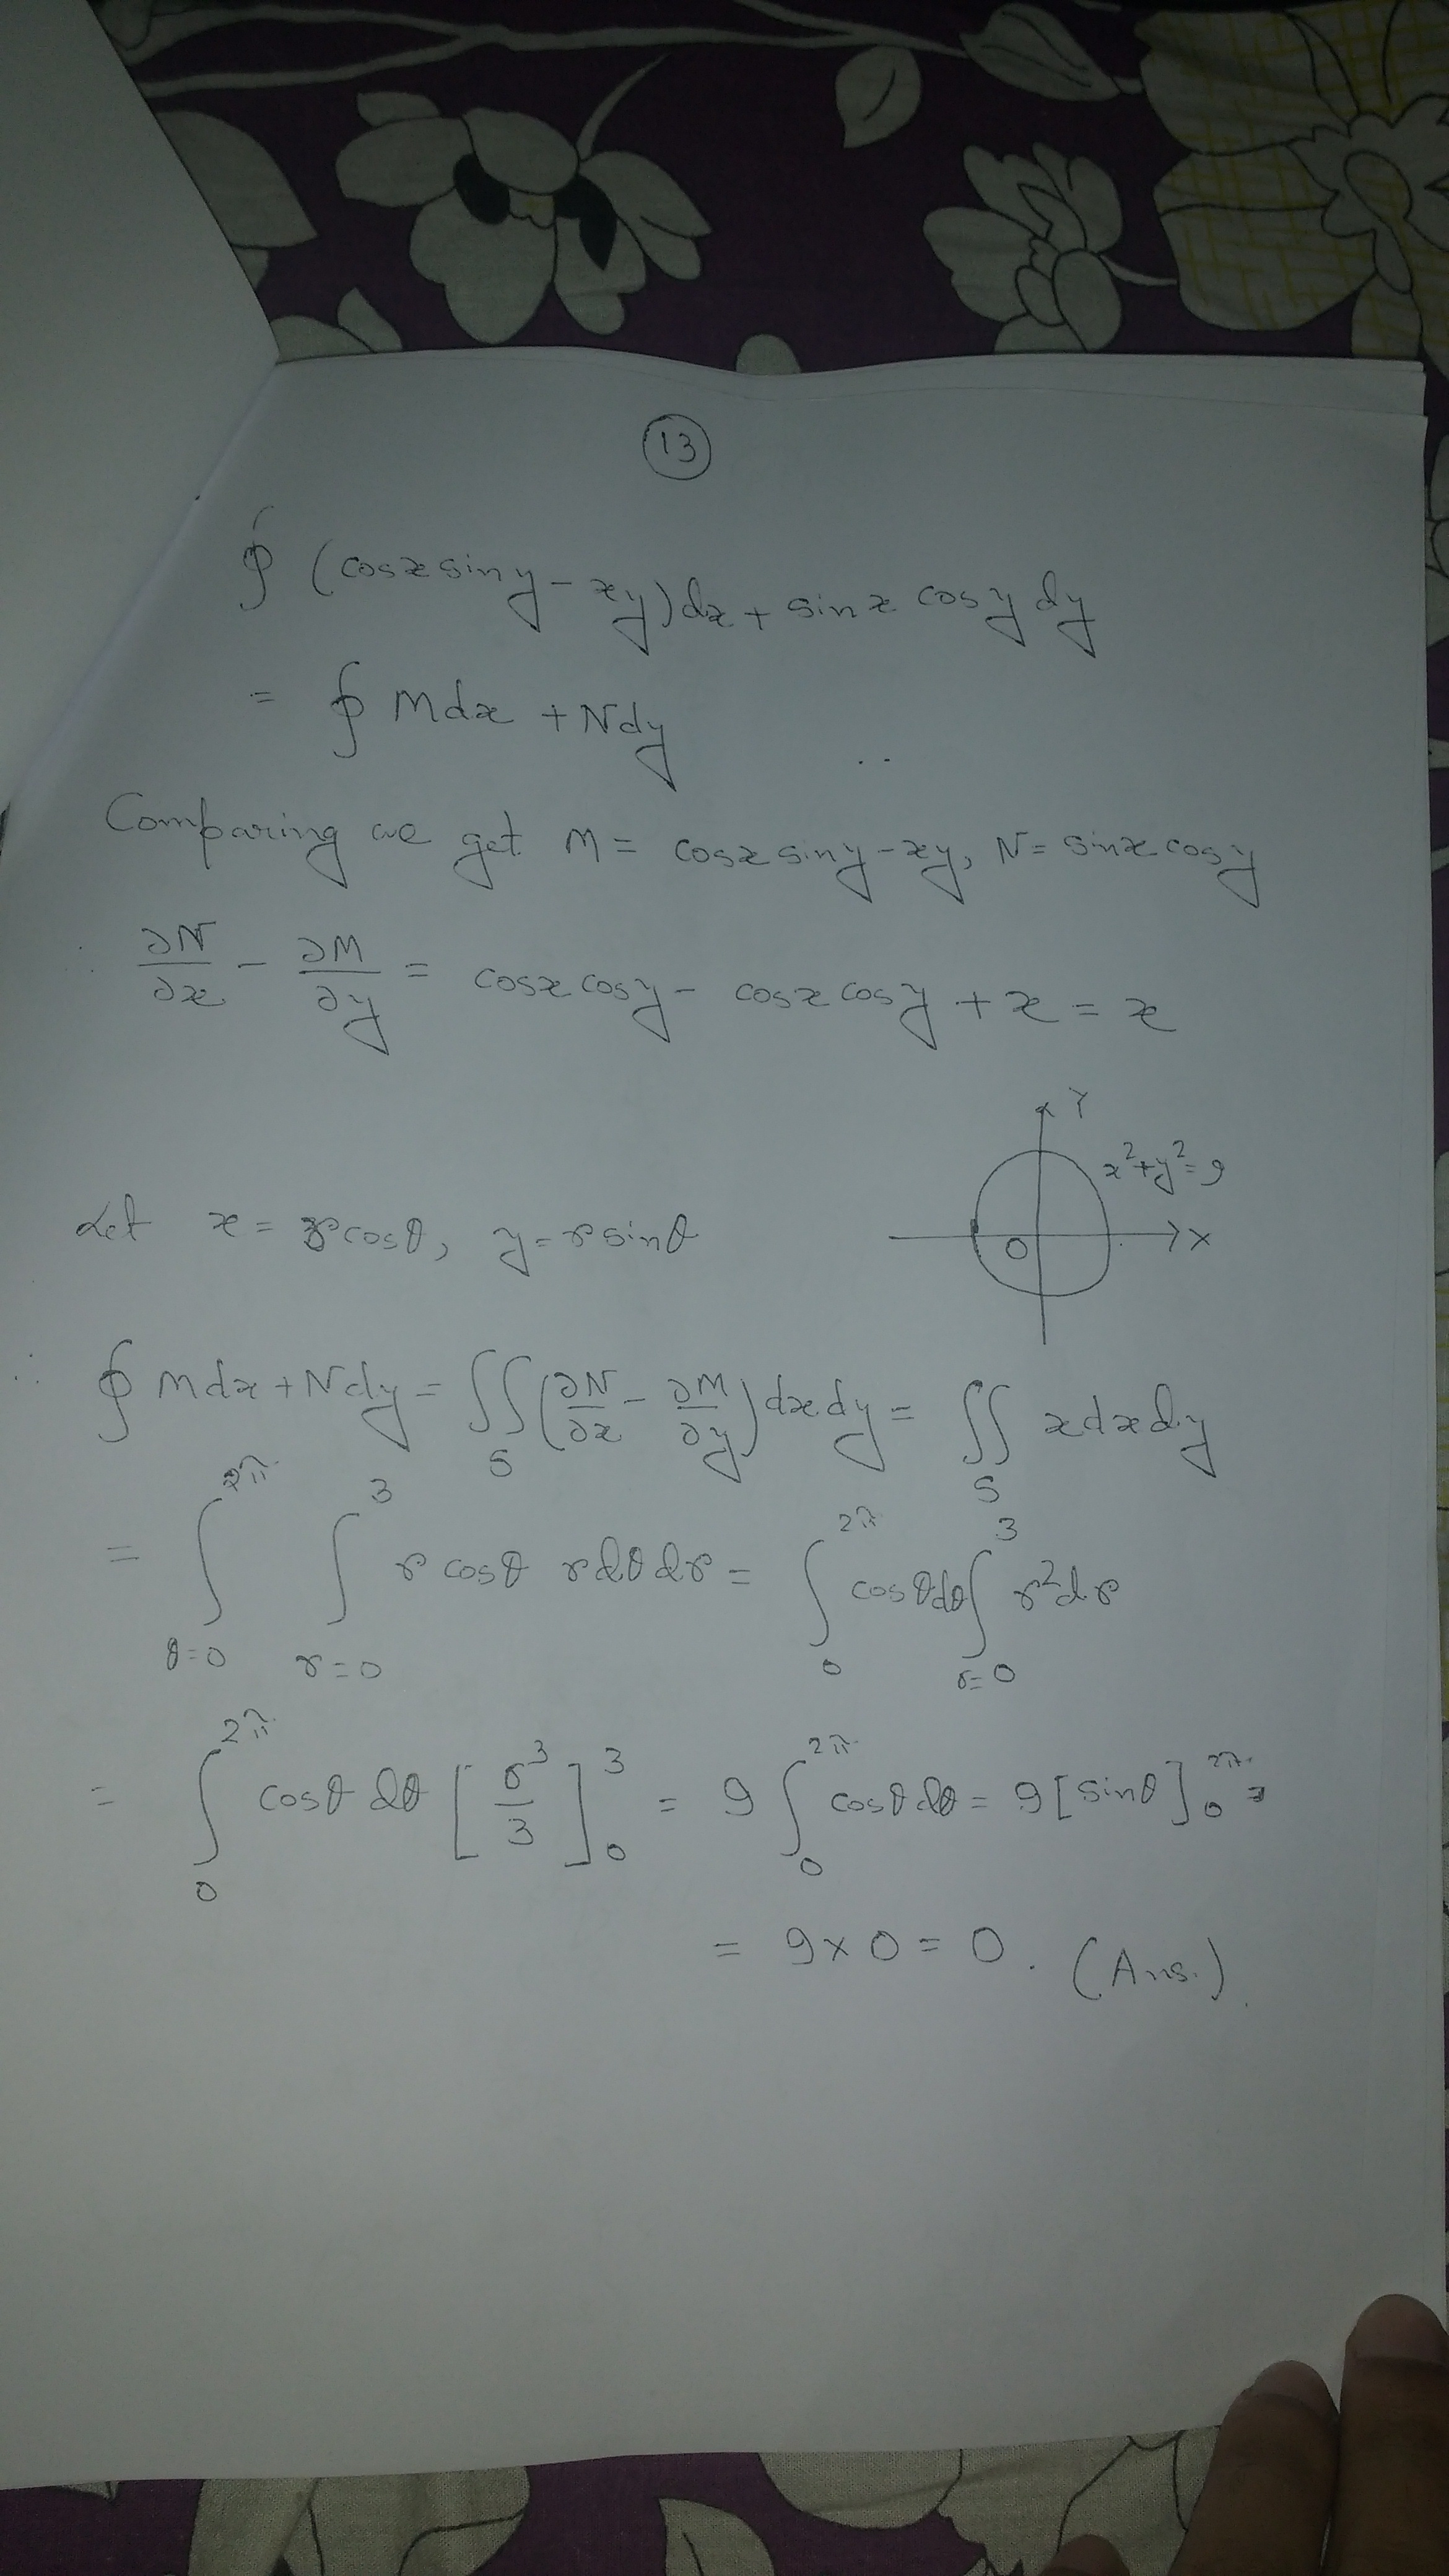 13
∮ (cosx siny - xy)dx + sinx cosy dy
= ∮ Mdx + Ndy
Comparing we get M = cosx siny - xy, N = sinx cosy
∴ ∂N/∂x - ∂M/∂y = cosx cosy - cosx cosy + x = x
Y
x²+y²=9
Let x = rcosθ, y = rsinθ
O X
∴ ∮ Mdx + Ndy = ∬_S (∂N/∂x - ∂M/∂y) dxdy = ∬_S xdxdy
= ∫_{θ=0}^{2π} ∫_{r=0}^{3} r cosθ rdθdr = ∫_0^{2π} cosθdθ ∫_{r=0}^{3} r²dr
= ∫_0^{2π} cosθ dθ [r³/3]_0^3 = 9 ∫_0^{2π} cosθdθ = 9[sinθ]_0^{2π} =
= 9×0 = 0. (Ans.)